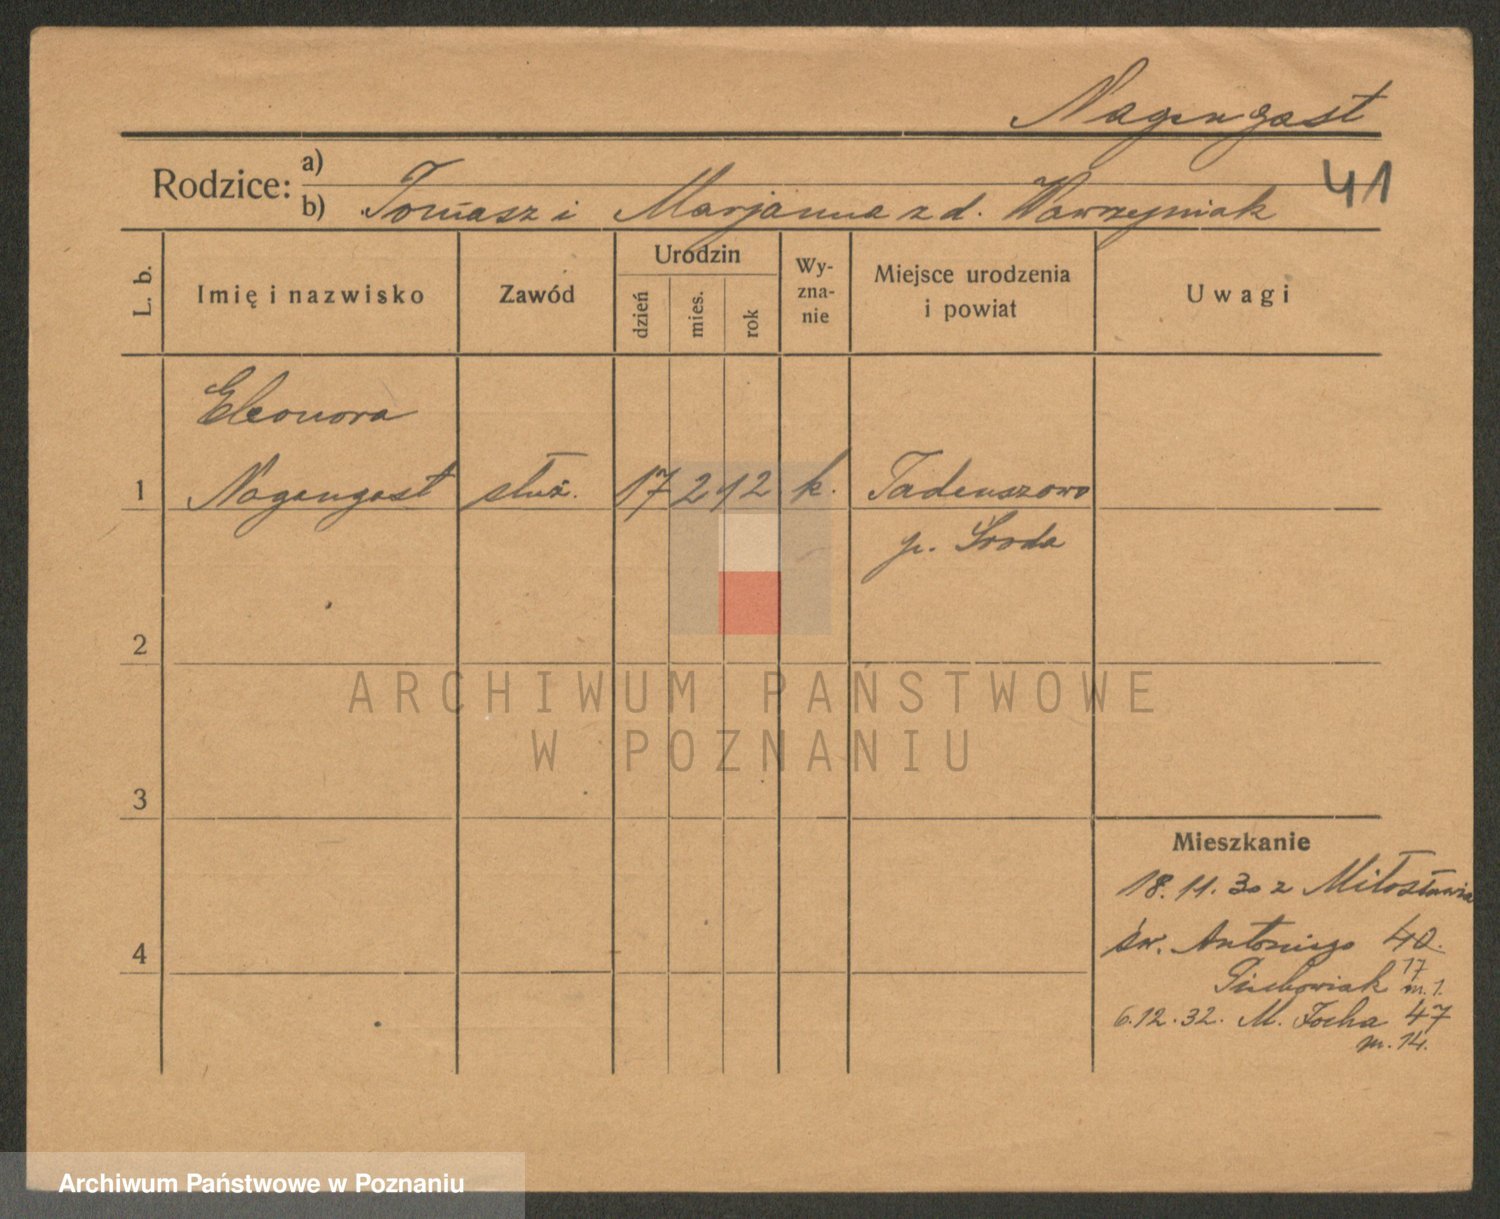 Nagengast
41
Rodzice: a)
b) Tomasz i Marjanna z d. Wawrzyniak
L. b.
Imię i nazwisko
Zawód
Urodzin
dzień
mies.
rok
Wy-
zna-
nie
Miejsce urodzenia
i powiat
Uwagi
Eleonora
1 Nagengast służ. 17 2 12 k. Tadeuszowo
p. Środa
2
3
4
Mieszkanie
18. 11. 30 z Miłosławia
św. Antoniego 40.
17
m. 1.
6.12.32. M. Focha 47
m. 14.
ARCHIWUM PAŃSTWOWE
W POZNANIU
Archiwum Państwowe w Poznaniu